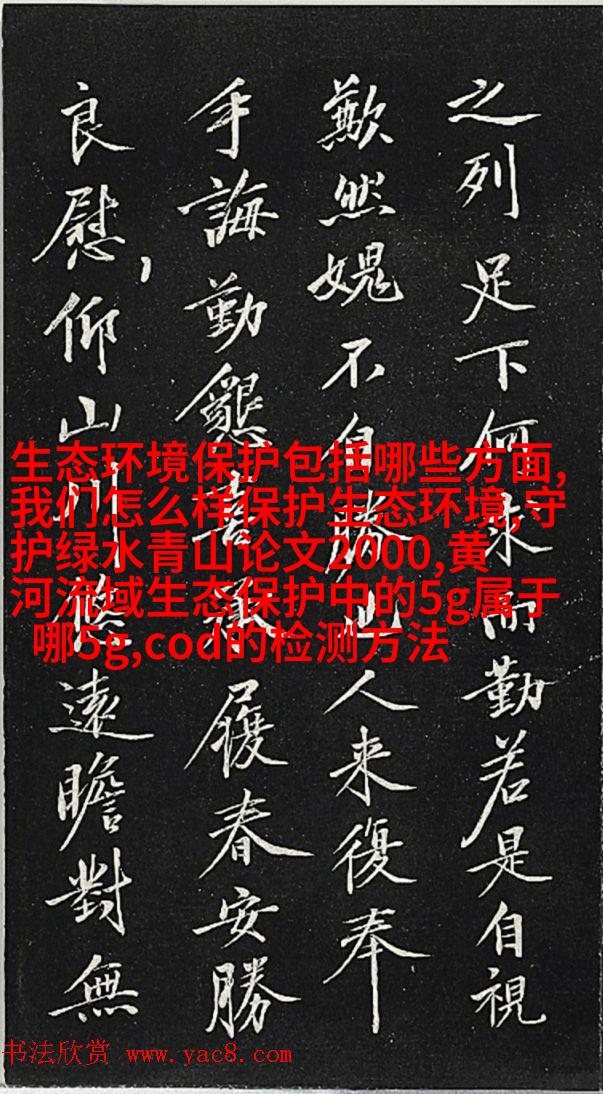 之列足下何求而勤若是自視
歉然媿不自勝也人来復奉
手誨勤懇喜承履春安勝
良慰,仰山川悠遠瞻對無
生态环境保护包括哪些方面,
我们怎么样保护生态环境,守
护绿水青山论文2000,黄
河流域生态保护中的5g属于
哪5g,cod的检测方法
书法欣赏 www.yac8.com